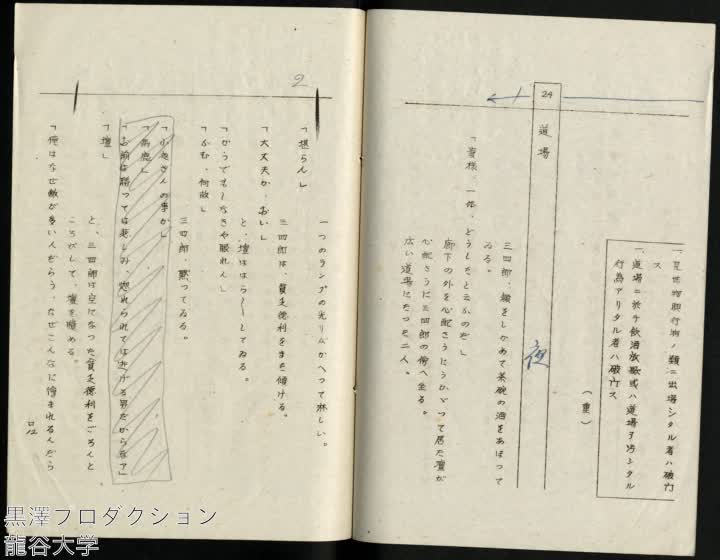 一、見世物興行物ノ類ニ出場シタル者ハ破門
ス
一、道場ニ於テ飲酒放歌或ハ道場ヲ汚シタル
行為アリタル者ハ破門ス
(重)
24
道場
夜
三四郎、顔をしかめて茶碗の酒をあほつて
ゐる。
「貴様、一体、どうしたと云ふのだ」
廊下の外を心配さうにうかゞつて居た壇が
心配さうに三四郎の傍へ坐る。
広い道場にたつた二人。
2
一つのランプの光りがかへつて淋しい。
「堪らん」
三四郎は、貧乏徳利をまた傾ける。
「大丈夫か、おい」
と、壇ははら〳〵してゐる。
「かうでもしなきや眠れん」
「ふむ、何故」
三四郎、黙つてゐる。
さんの事か」
「馬鹿」
「お前は勝つては悲しみ、惚れられては逃げる男だからなア」
「壇」
と、三四郎は空になつた貧乏徳利をごろんと
ころがして、壇を眺める。
「俺はなぜ敵が多いんだらう、なぜこんなに憎まれるんだら
黒澤プロダクション
龍谷大学